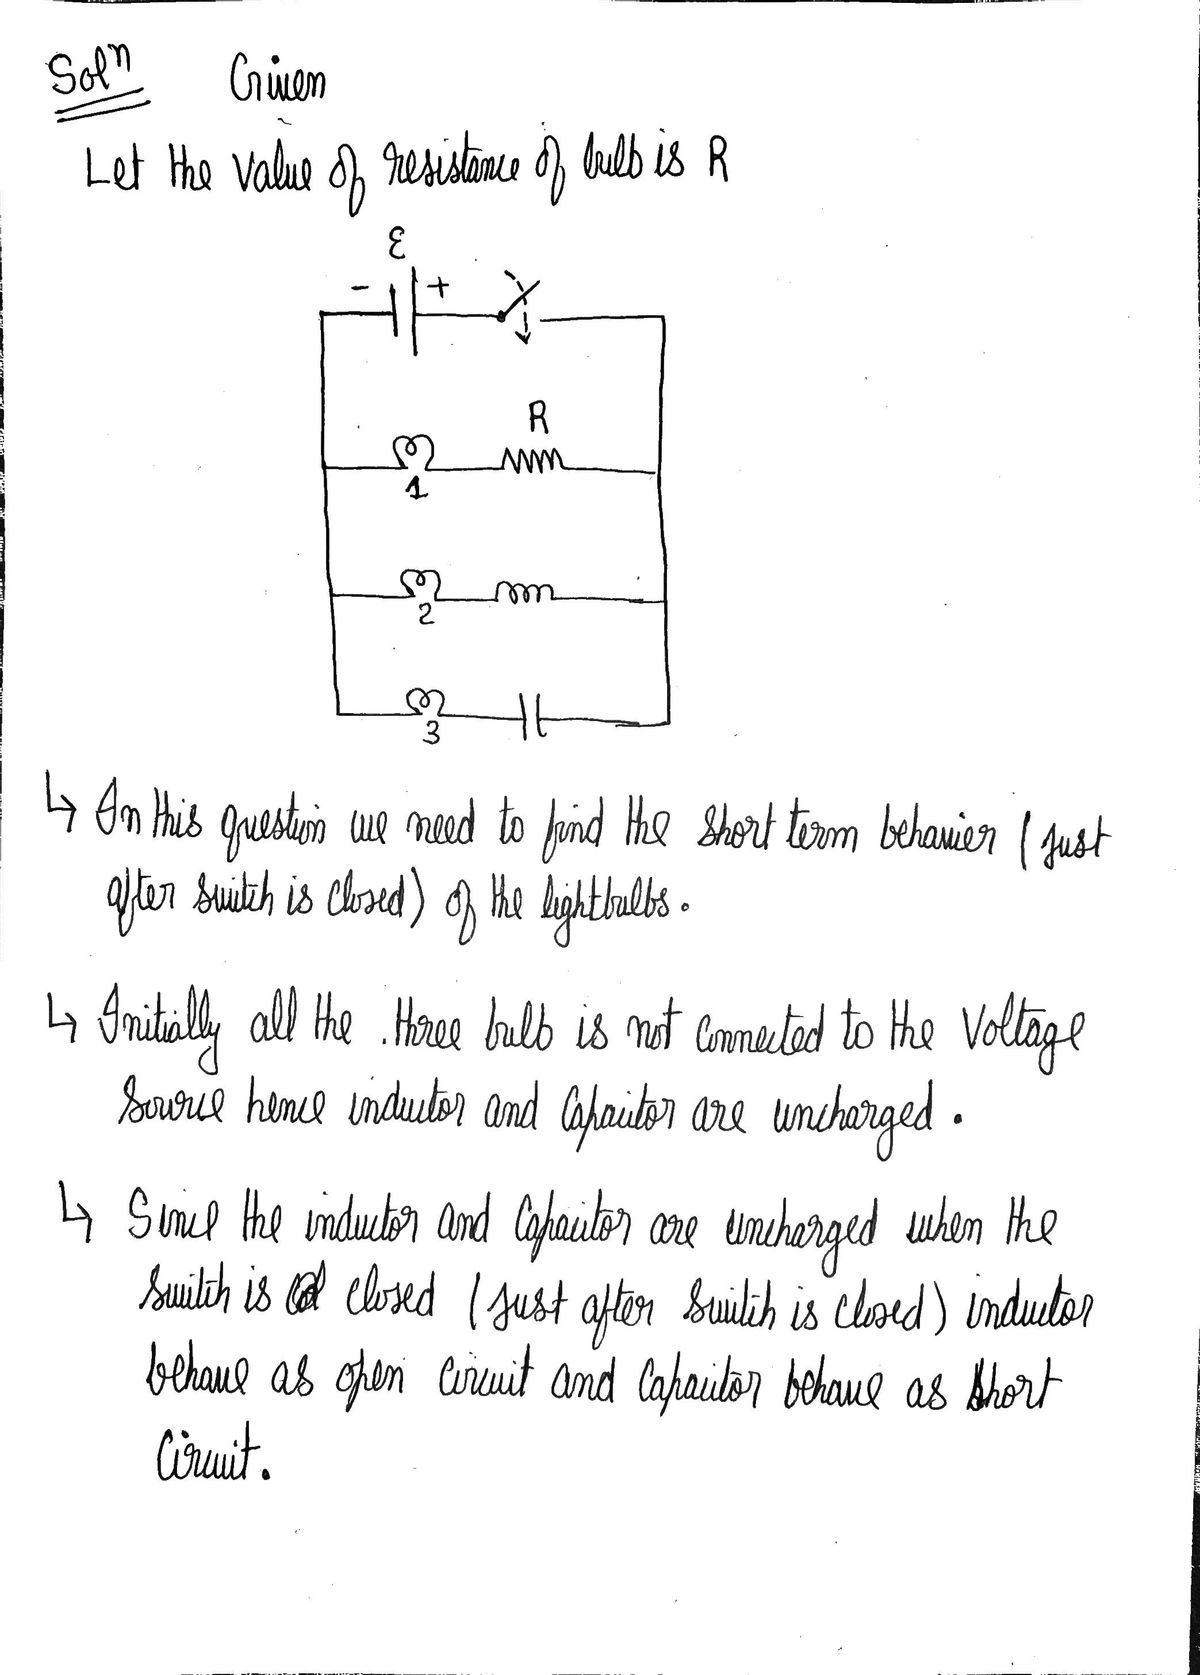 Solⁿ Given
Let the value of resistance of bulb is R
ε
- +
R
1
2
3
↳ In this question we need to find the short term behavier ( Just
after switch is closed) of the lightbulbs.
↳ Initially all the three bulb is not connected to the Voltage
source hence inductor and Capacitor are uncharged.
↳ Since the inductor and Capacitor are uncharged when the
switch is closed ( Just after switch is closed) inductor
behave as open circuit and Capacitor behave as short
Circuit.